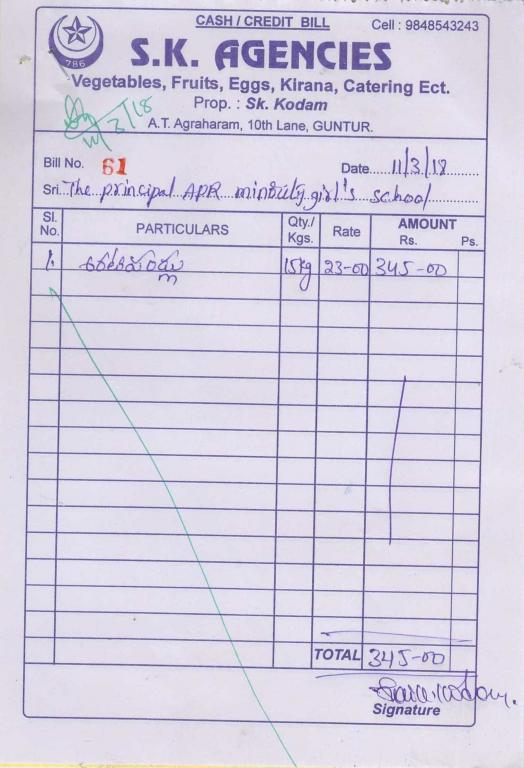 CASH / CREDIT BILL
Cell : 9848543243
786
S.K. AGENCIES
Vegetables, Fruits, Eggs, Kirana, Catering Ect.
Prop. : Sk. Kodam
A.T. Agraharam, 10th Lane, GUNTUR.
11/3/18
Bill No. 61
Date 11/3/18
Sri. The principal APR minority girl's school
Sl. No. PARTICULARS Qty./ Kgs. Rate AMOUNT Rs. Ps.
1. 15kg 23-00 345-00
TOTAL 345-00
Signature